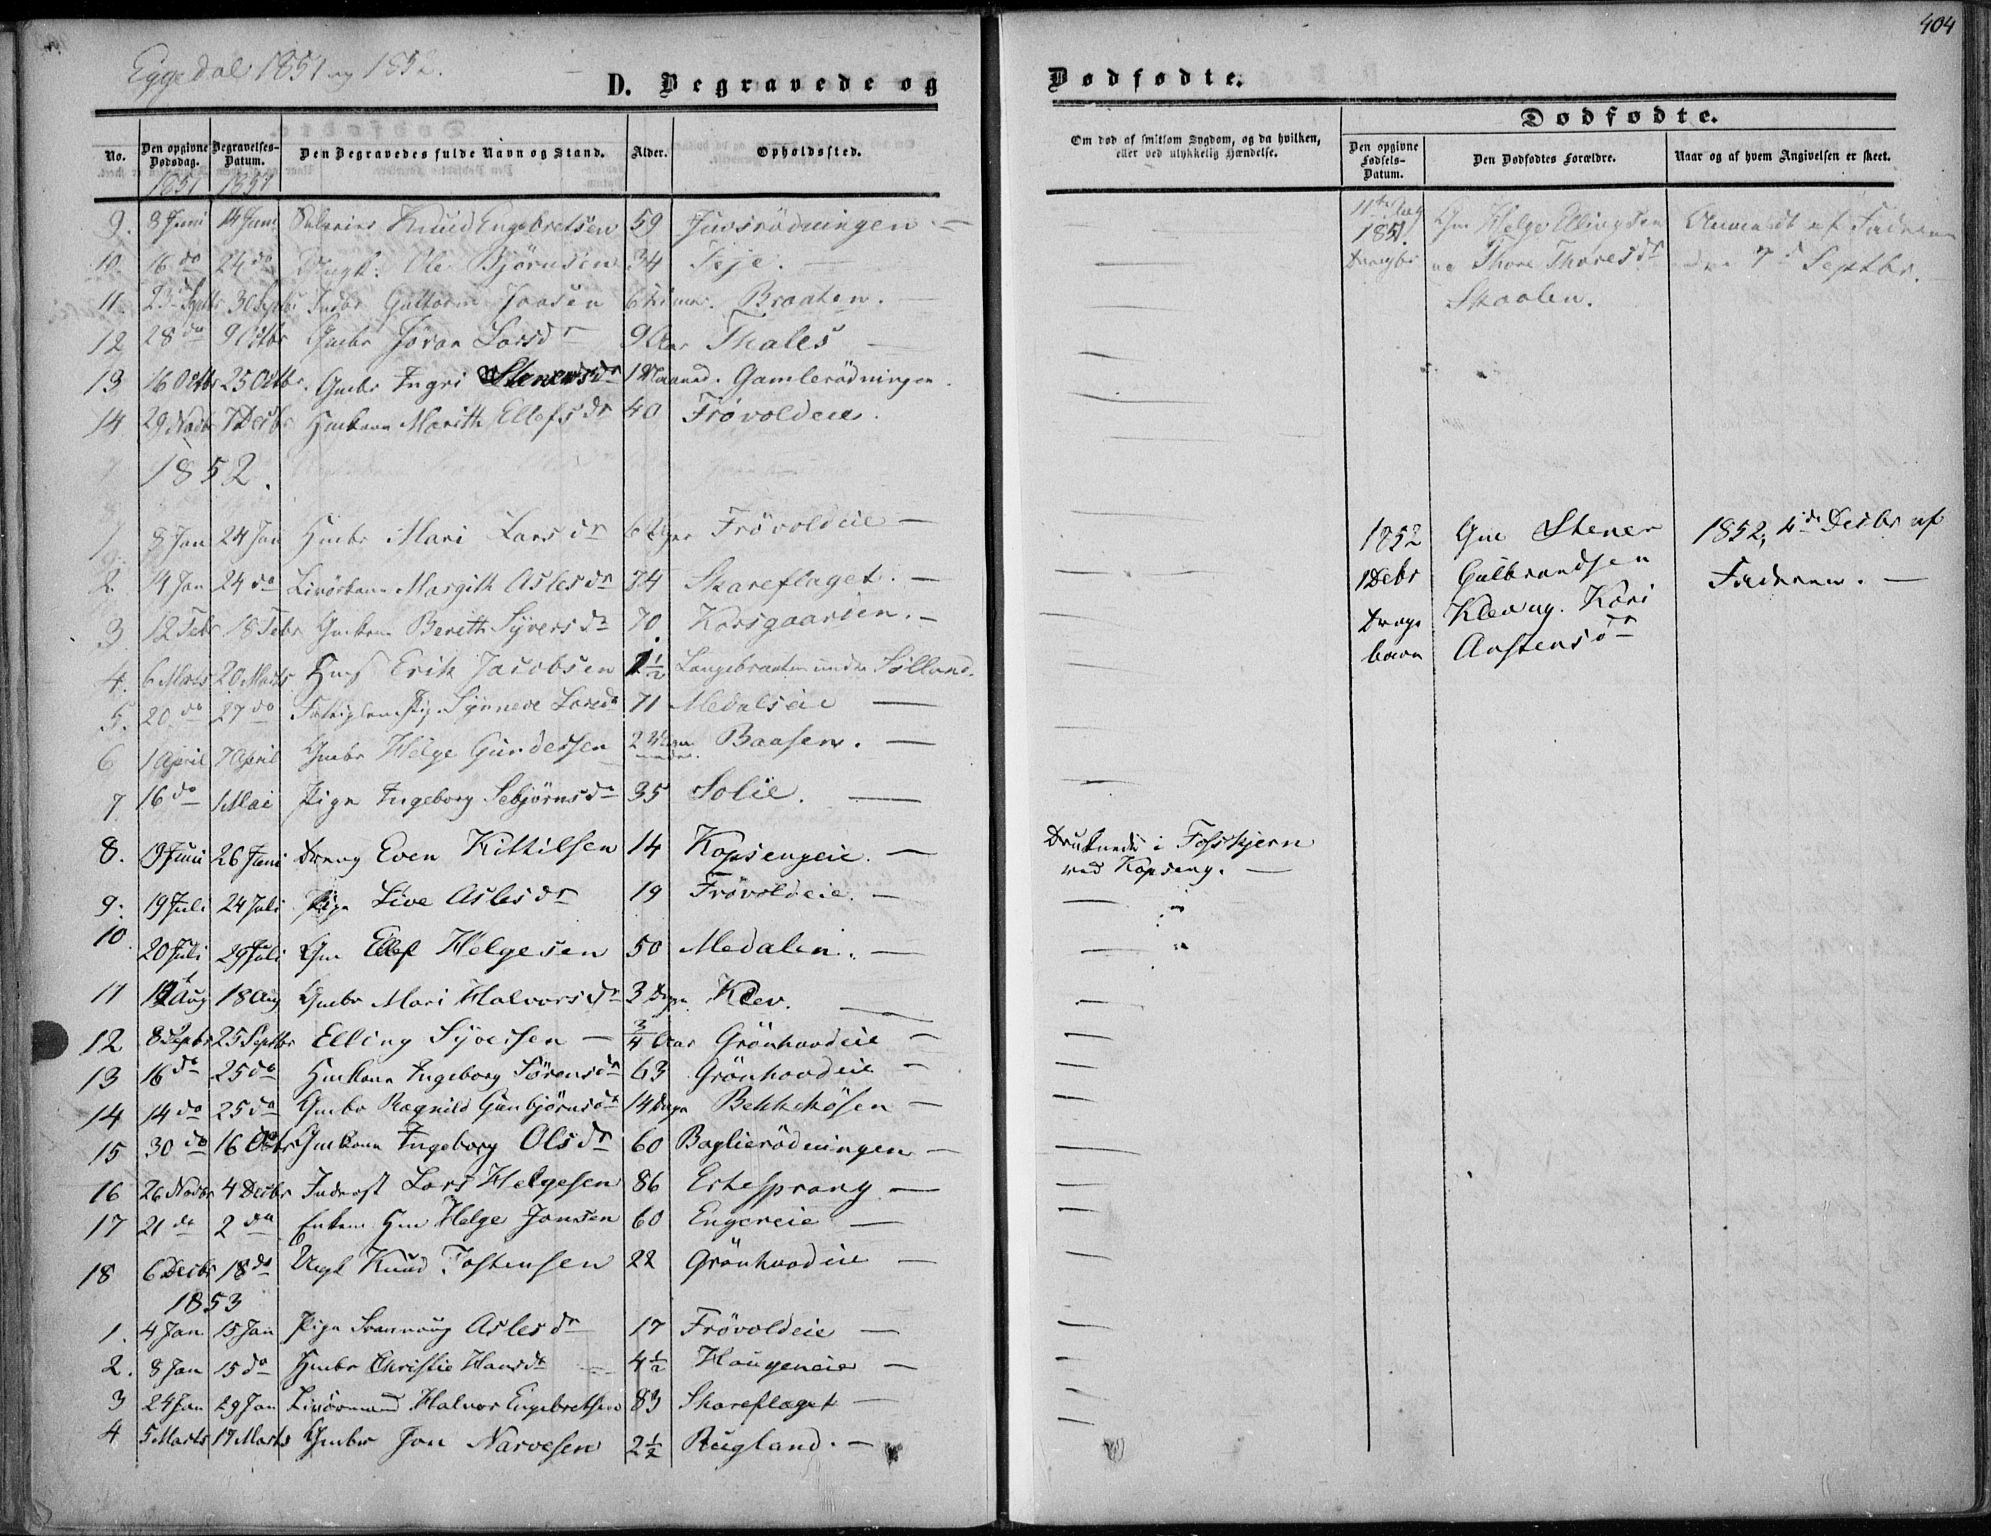 404
Eggedal 1851 og 1852.
D. Begravede og
Dødfødte.
Dødfødte.
No.
Den opgivne Dødsdag.
Begravelses-Datum.
Den Begravedes fulde Navn og Stand.
Alder.
Opholdssted.
Om død af smitsom Sygdom, og da hvilken, eller ved ulykkelig Hændelse.
Den opgivne Fødsels-Datum.
Den Dødfødtes Forældre.
Naar og af hvem Angivelsen er skeet.
1851 1851
9. 8 Juni 14 Juni Knud Engebretsen 59 Juvsrödningen —
10 16 do 24 do Ungk. Ole Bjørnsen 34 —
11. 30 Septbr Guttorm 6 Braaten.
12 28 do 9 Octbr Gmbr Jøran Larsdr 9 Aar Thales —
13 16 Octbr 25 Octbr. Gmbr Ingri Stenersdr 1 Maaned. Gamlerödningen.
14 29 Novbr 7 Decbr Huskone Marith Ellefsdr 40 Frövoldeie.
1852.
1 8 Jan 24 Jan Hmbr Mari Larsdr 6 Uger Frövoldeie —
2 14 Jan 24 do Livörkone Margith Aslesdr 74 Skareflaget. —
3 12 Febr 18 Febr Gmkone Berith Syversdr 70. Korsgaarden. —
4. 6 Marts 20 Marts Erik Jacobsen 1½ Langebraaten under Sölland.
5. 20 do 27 do Synneve Larsdr 71 Medalseie —
6 1 April 7 April Gmbr Helge Gundersen 2 Baasen. —
7 16 do 1 Mai Pige Ingeborg Sebjørnsdr 35 Solie. —
8. 19 Juni 26 Juni Dreng Even Kittilsen 14 Kopsengeie. —
9. 19 Juli 24 Juli Pige Live Aslesdr 19 Frövoldeie. —
10. 20 Juli 29 Juli Gm Ellef Helgesen 50 Medalen. —
11 Aug 18 Aug Gmbr Mari Halvorsdr 3 Dage Klev. —
12 8 Septbr 25 Septbr Elling Syversen — ¾ Aar Grönhovdeie —
13 16 do 25 do Huskone Ingeborg Sörensdr 63 Grönhovdeie —
14 14 do 25 do Gmbr Ragnild Gunbjörnsdr 14 Dage Bekkekösen —
15 30 do 16 Octbr Gmkone Ingeborg Olsdr 60 Baglierödningen —
16 26 Novbr 4 Decbr Inderst Lars Helgesen 86 Ertesprang —
17 21 do 2 do Enkem Hm Helge Jonsen 60 Engereie —
18 6 Decbr 18 do Ungk Knud Tostensen 22 Grönhovdeie —
1853
1. 4 Jan 15 Jan Pige Svannaug Aslesdr 17 Frövoldeie —
2. 8 Jan 15 do Hmbr Christie Hansdr 4½ Haugeneie —
3 24 Jan 29 Jan Livörmand Halvor Engebretsen 83 Skareflaget —
4 5 Marts 17 Marts Gmbr Jon Narvesen 2½ Rugland. —
Druknede i Fosskjern
ved Kopseng. —
11te Aug Gm Helge Ellingsen Anmeldt af Faderen
1851. og Thore Thoresdr den 7de Septbr.
Drengbr Skaalen.
1852 Gm Stener 1852, 4de Decbr af
1 Decbr Gulbrandsen Faderen. —
Drenge Klev og Kari
barn Anstensdr